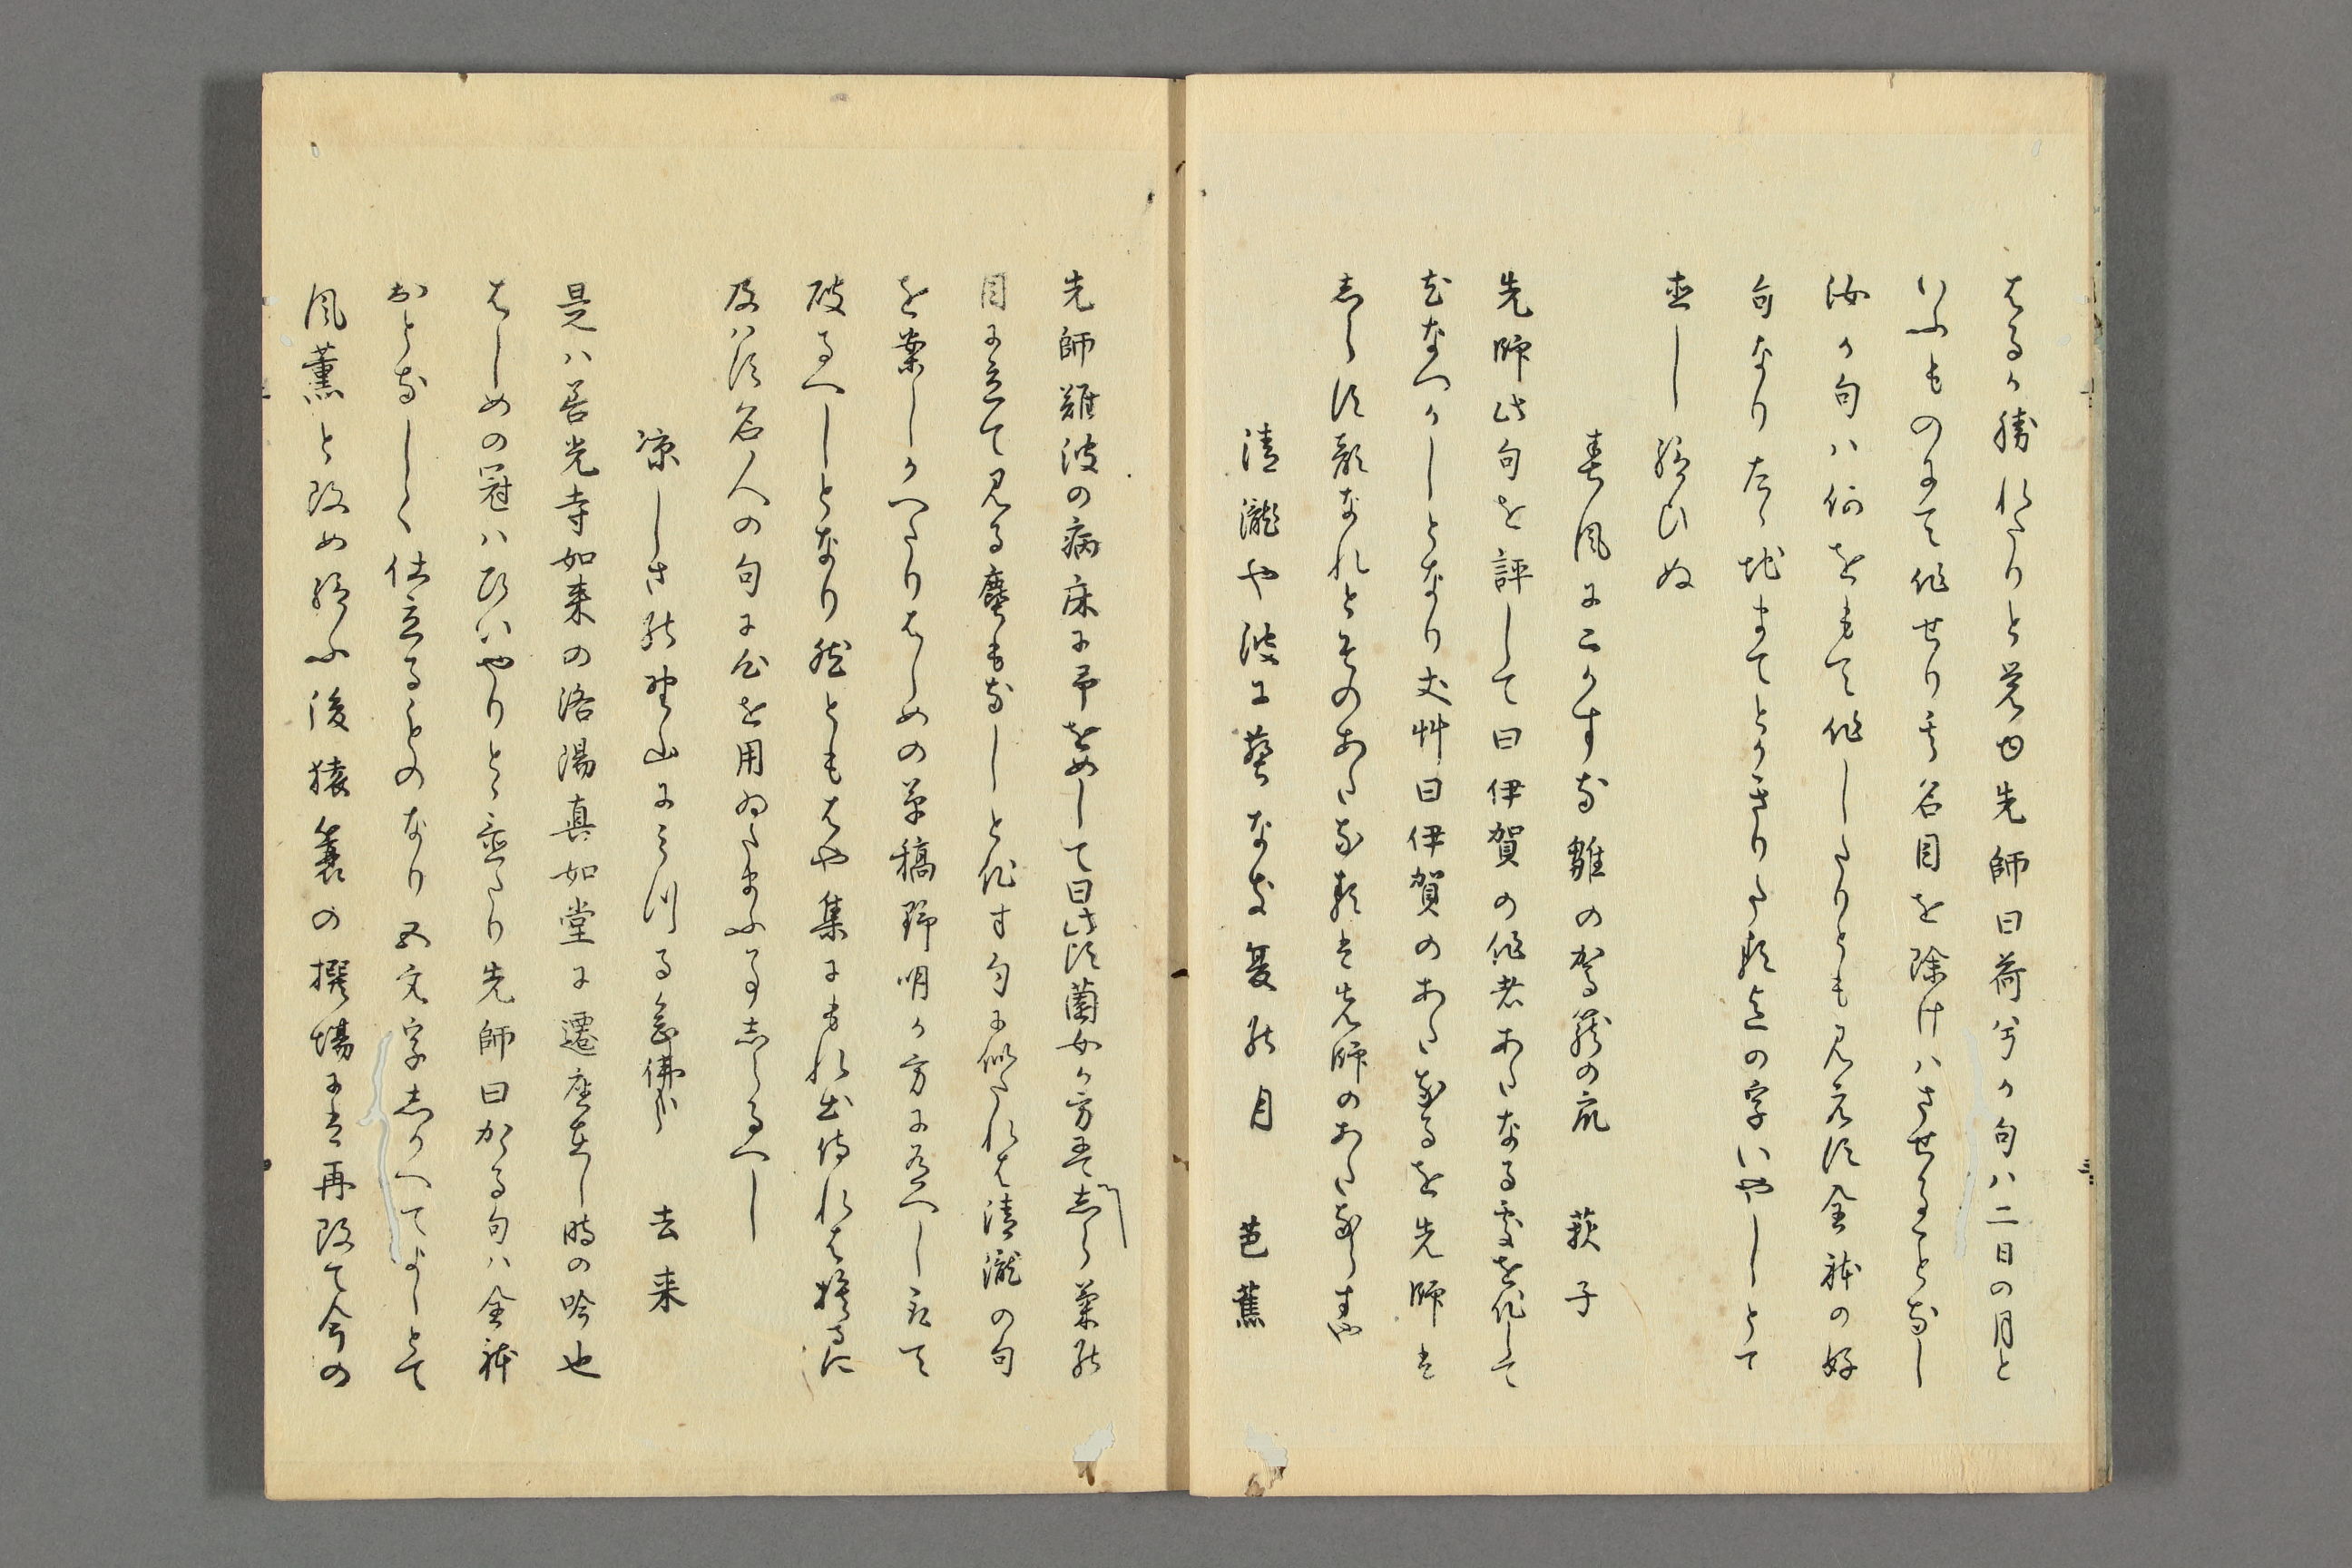 はるか勝れたりと覚ゆ先師曰荷兮か句ハ二日の月と
いふものにて作せり其名目を除けハさせることなし
汝か句ハ何をもて作したりとも見えす全躰の好
句なりたゝ地まてとかきりたる迄の字いやしとて
直し給ひぬ
春風にこかすな雛の駕籠の衆　荻子
先師此句を評して曰伊賀の作者あたなる処を作して
尤なつかしとなり丈艸曰伊賀のあたなるを先師は
しらす顔なれとそのあたなるは先師のあたならすや
清瀧や波に塵なき夏の月　芭蕉
先師難波の病床に予をめして曰此頃薗女か方にてしら菊の
目に立て見る塵もなしと作す句に似たれは清瀧の句
を案しかへたりはしめの草稿野明か方に有へし取て
破るへしとなり然ともはや集にもれ出侍れは捨るに
及ハす名人の句に心を用ゐたまふ事しらるへし
涼しさの野山にみつる念佛かな　去来
是ハ善光寺如来の洛陽真如堂に遷座在し時の吟也
はしめの冠ハひいやりとゝ置たり先師曰かゝる句ハ全躰
おとなしく仕立るものなり五文字しかへてよしとて
風薫と改め給ふ後猿蓑の撰場には再改て今の